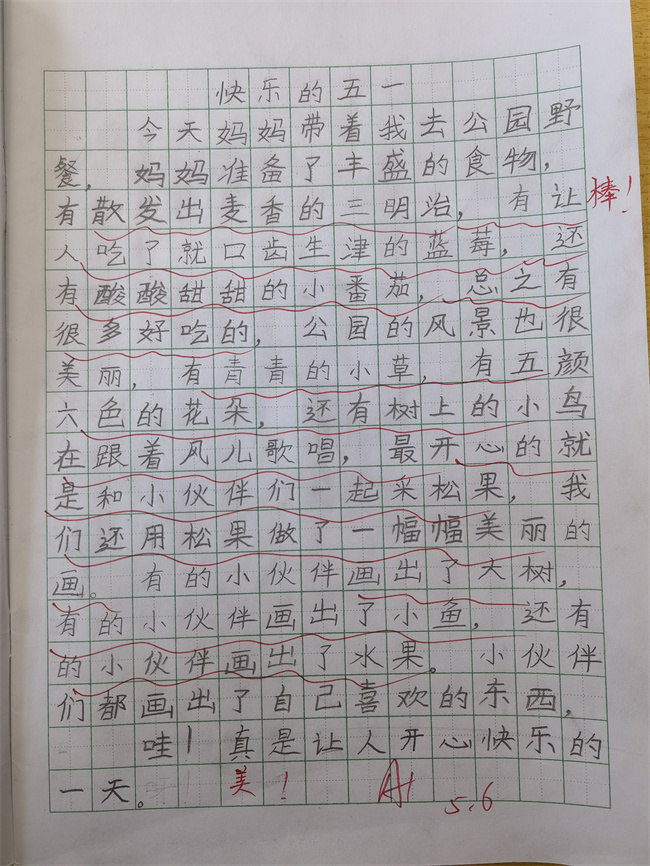 快乐的五一
今天妈妈带着我去公园野
餐，妈妈准备了丰盛的食物，
有散发出麦香的三明治，有让
棒！
人吃了就口齿生津的蓝莓，还
有酸酸甜甜的小番茄，总之有
很多好吃的，公园的风景也很
美丽，有青青的小草，有五颜
六色的花朵，还有树上的小鸟
在跟着风儿歌唱，最开心的就
是和小伙伴们一起采松果，我
们还用松果做了一幅幅美丽的
画。有的小伙伴画出了大树，
有的小伙伴画出了小鱼，还有
的小伙伴画出了水果。小伙伴
们都画出了自己喜欢的东西，
哇！真是让人开心快乐的
一天。
美！
A+
5.6